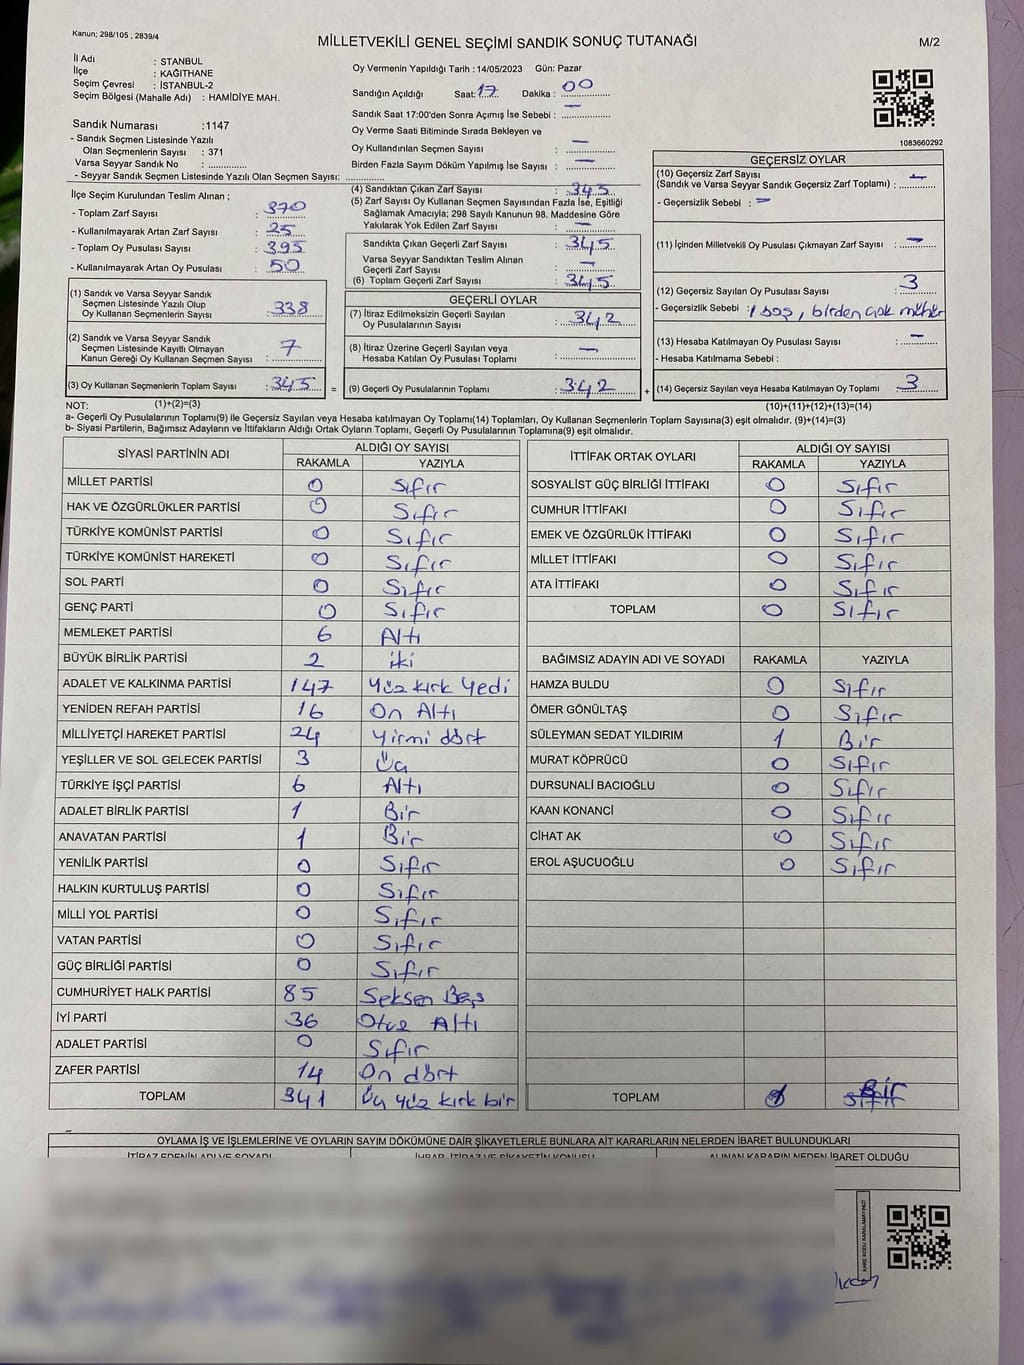 Kanun; 298/105 , 2839/4
MİLLETVEKİLİ GENEL SEÇİMİ SANDIK SONUÇ TUTANAĞI
M/2
İl Adı : STANBUL
İlçe : KAĞITHANE
Seçim Çevresi : İSTANBUL-2
Seçim Bölgesi (Mahalle Adı) : HAMİDİYE MAH.
Oy Vermenin Yapıldığı Tarih : 14/05/2023 Gün: Pazar
Sandığın Açıldığı Saat: 17 Dakika : 00
Sandık Saat 17:00'den Sonra Açımış İse Sebebi : —
Oy Verme Saati Bitiminde Sırada Bekleyen ve
Oy Kullandırılan Seçmen Sayısı : —
Birden Fazla Sayım Döküm Yapılmış İse Sayısı : —
1083660292
Sandık Numarası :1147
- Sandık Seçmen Listesinde Yazılı
Olan Seçmenlerin Sayısı : 371
Varsa Seyyar Sandık No : ..............
- Seyyar Sandık Seçmen Listesinde Yazılı Olan Seçmen Sayısı: ..............
İlçe Seçim Kurulundan Teslim Alınan ;
- Toplam Zarf Sayısı : 370
- Kullanılmayarak Artan Zarf Sayısı : 25
- Toplam Oy Pusulası Sayısı : 395
- Kullanılmayarak Artan Oy Pusulası : 50
(1) Sandık ve Varsa Seyyar Sandık
Seçmen Listesinde Yazılı Olup
Oy Kullanan Seçmenlerin Sayısı : 338
(2) Sandık ve Varsa Seyyar Sandık
Seçmen Listesinde Kayıtlı Olmayan
Kanun Gereği Oy Kullanan Seçmen Sayısı : 7
(3) Oy Kullanan Seçmenlerin Toplam Sayısı : 345 =
(4) Sandıktan Çıkan Zarf Sayısı : 345
(5) Zarf Sayısı Oy Kullanan Seçmen Sayısından Fazla İse, Eşitliği
Sağlamak Amacıyla; 298 Sayılı Kanunun 98. Maddesine Göre
Yakılarak Yok Edilen Zarf Sayısı : —
Sandıkta Çıkan Geçerli Zarf Sayısı : 345
Varsa Seyyar Sandıktan Teslim Alınan
Geçerli Zarf Sayısı : —
(6) Toplam Geçerli Zarf Sayısı : 345
GEÇERLİ OYLAR
(7) İtiraz Edilmeksizin Geçerli Sayılan
Oy Pusulalarının Sayısı : 342
(8) İtiraz Üzerine Geçerli Sayılan veya
Hesaba Katılan Oy Pusulası Toplamı : —
(9) Geçerli Oy Pusulalarının Toplamı : 342 +
GEÇERSİZ OYLAR
(10) Geçersiz Zarf Sayısı
(Sandık ve Varsa Seyyar Sandık Geçersiz Zarf Toplamı) : —
- Geçersizlik Sebebi : —
(11) İçinden Milletvekili Oy Pusulası Çıkmayan Zarf Sayısı : —
(12) Geçersiz Sayılan Oy Pusulası Sayısı : 3
- Geçersizlik Sebebi : 1 boş, birden çok mühür
(13) Hesaba Katılmayan Oy Pusulası Sayısı : —
- Hesaba Katılmama Sebebi :
(14) Geçersiz Sayılan veya Hesaba Katılmayan Oy Toplamı : 3
NOT: (1)+(2)=(3) (10)+(11)+(12)+(13)=(14)
a- Geçerli Oy Pusulalarının Toplamı(9) ile Geçersiz Sayılan veya Hesaba katılmayan Oy Toplamı(14) Toplamları, Oy Kullanan Seçmenlerin Toplam Sayısına(3) eşit olmalıdır. (9)+(14)=(3)
b- Siyasi Partilerin, Bağımsız Adayların ve İttifakların Aldığı Ortak Oyların Toplamı, Geçerli Oy Pusulalarının Toplamına(9) eşit olmalıdır.
SİYASİ PARTİNİN ADI ALDIĞI OY SAYISI
RAKAMLA YAZIYLA
MİLLET PARTİSİ 0 Sıfır
HAK VE ÖZGÜRLÜKLER PARTİSİ 0 Sıfır
TÜRKİYE KOMÜNİST PARTİSİ 0 Sıfır
TÜRKİYE KOMÜNİST HAREKETİ 0 Sıfır
SOL PARTİ 0 Sıfır
GENÇ PARTİ 0 Sıfır
MEMLEKET PARTİSİ 6 Altı
BÜYÜK BİRLİK PARTİSİ 2 iki
ADALET VE KALKINMA PARTİSİ 147 Yüz kırk Yedi
YENİDEN REFAH PARTİSİ 16 On Altı
MİLLİYETÇİ HAREKET PARTİSİ 24 Yirmi dört
YEŞİLLER VE SOL GELECEK PARTİSİ 3 Üç
TÜRKİYE İŞÇİ PARTİSİ 6 Altı
ADALET BİRLİK PARTİSİ 1 Bir
ANAVATAN PARTİSİ 1 Bir
YENİLİK PARTİSİ 0 Sıfır
HALKIN KURTULUŞ PARTİSİ 0 Sıfır
MİLLİ YOL PARTİSİ 0 Sıfır
VATAN PARTİSİ 0 Sıfır
GÜÇ BİRLİĞİ PARTİSİ 0 Sıfır
CUMHURİYET HALK PARTİSİ 85 Seksen Beş
İYİ PARTİ 36 Otuz Altı
ADALET PARTİSİ 0 Sıfır
ZAFER PARTİSİ 14 On dört
TOPLAM 341 Üç yüz kırk bir
İTTİFAK ORTAK OYLARI ALDIĞI OY SAYISI
RAKAMLA YAZIYLA
SOSYALİST GÜÇ BİRLİĞİ İTTİFAKI 0 Sıfır
CUMHUR İTTİFAKI 0 Sıfır
EMEK VE ÖZGÜRLÜK İTTİFAKI 0 Sıfır
MİLLET İTTİFAKI 0 Sıfır
ATA İTTİFAKI 0 Sıfır
TOPLAM 0 Sıfır
BAĞIMSIZ ADAYIN ADI VE SOYADI RAKAMLA YAZIYLA
HAMZA BULDU 0 Sıfır
ÖMER GÖNÜLTAŞ 0 Sıfır
SÜLEYMAN SEDAT YILDIRIM 1 Bir
MURAT KÖPRÜCÜ 0 Sıfır
DURSUNALİ BACIOĞLU 0 Sıfır
KAAN KONANCİ 0 Sıfır
CİHAT AK 0 Sıfır
EROL AŞUCUOĞLU 0 Sıfır
TOPLAM 1 BİR
OYLAMA İŞ VE İŞLEMLERİNE VE OYLARIN SAYIM DÖKÜMÜNE DAİR ŞİKAYETLERLE BUNLARA AİT KARARLARIN NELERDEN İBARET BULUNDUKLARI
İTİRAZ EDENİN ADI VE SOYADI İHBAR, İTİRAZ VE ŞİKAYETİN KONUSU ALINAN KARARIN NEDEN İBARET OLDUĞU
KARE KODU KARALAMAYINIZ!